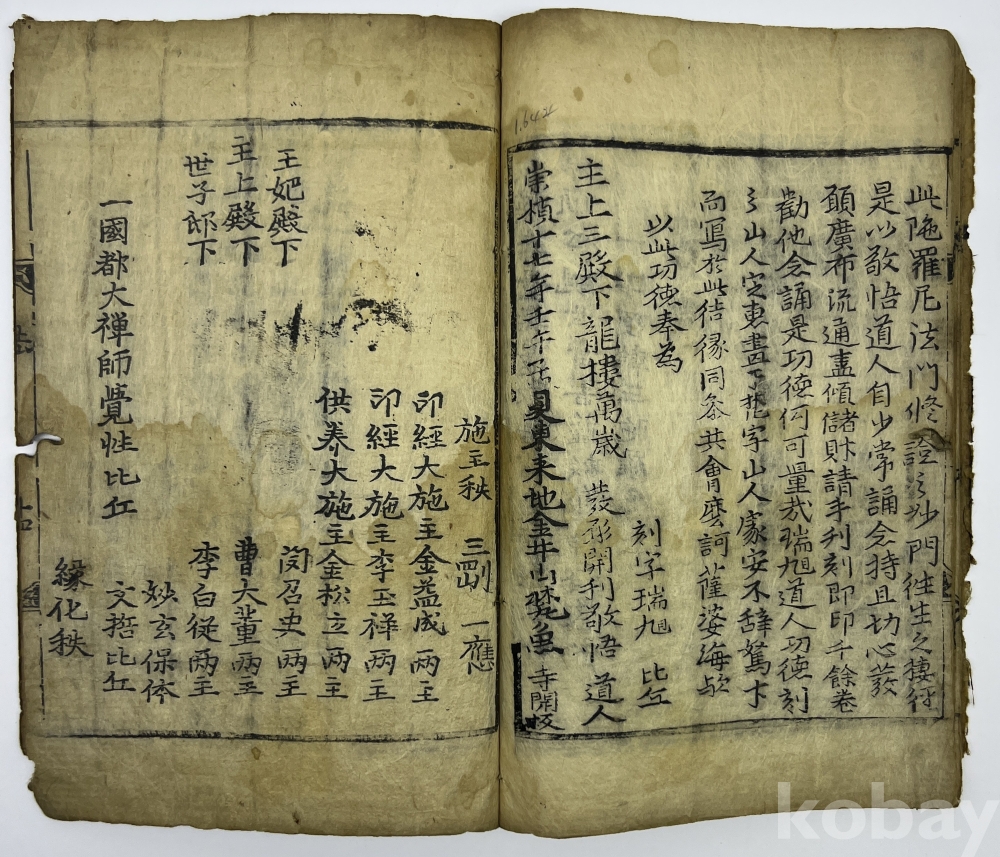 此陁羅尼法門修證之妙門徃生之捷徑
是以敬悟道人自少常誦念持且切心發
願廣布流通盡傾儲財請手利刻即印千餘卷
勸他念誦是功德何可量哉瑞旭道人功德刻
之山人定惠畫 梵字山人處安不辭駑才
而寫於此结緣同叅共會麽訶薩婆海歟
以此功德奉為
刻字瑞旭 比丘
主上三殿下龍樓萬歲 發形開刊敬悟 道人
崇禎十七年壬午 東來地金井山梵魚寺開板
施主秩 三剛 一應
印經大施主金益成 两主
印經大施主李玉祥两主
供养大施主金松立两主
王妃殿下
主上殿下
世子郎下
召史两主
曹大董两主
李白從两主
妙玄保体
文哲比丘
一國都大禪師覺性比丘
緣化秩
1.642
kobay